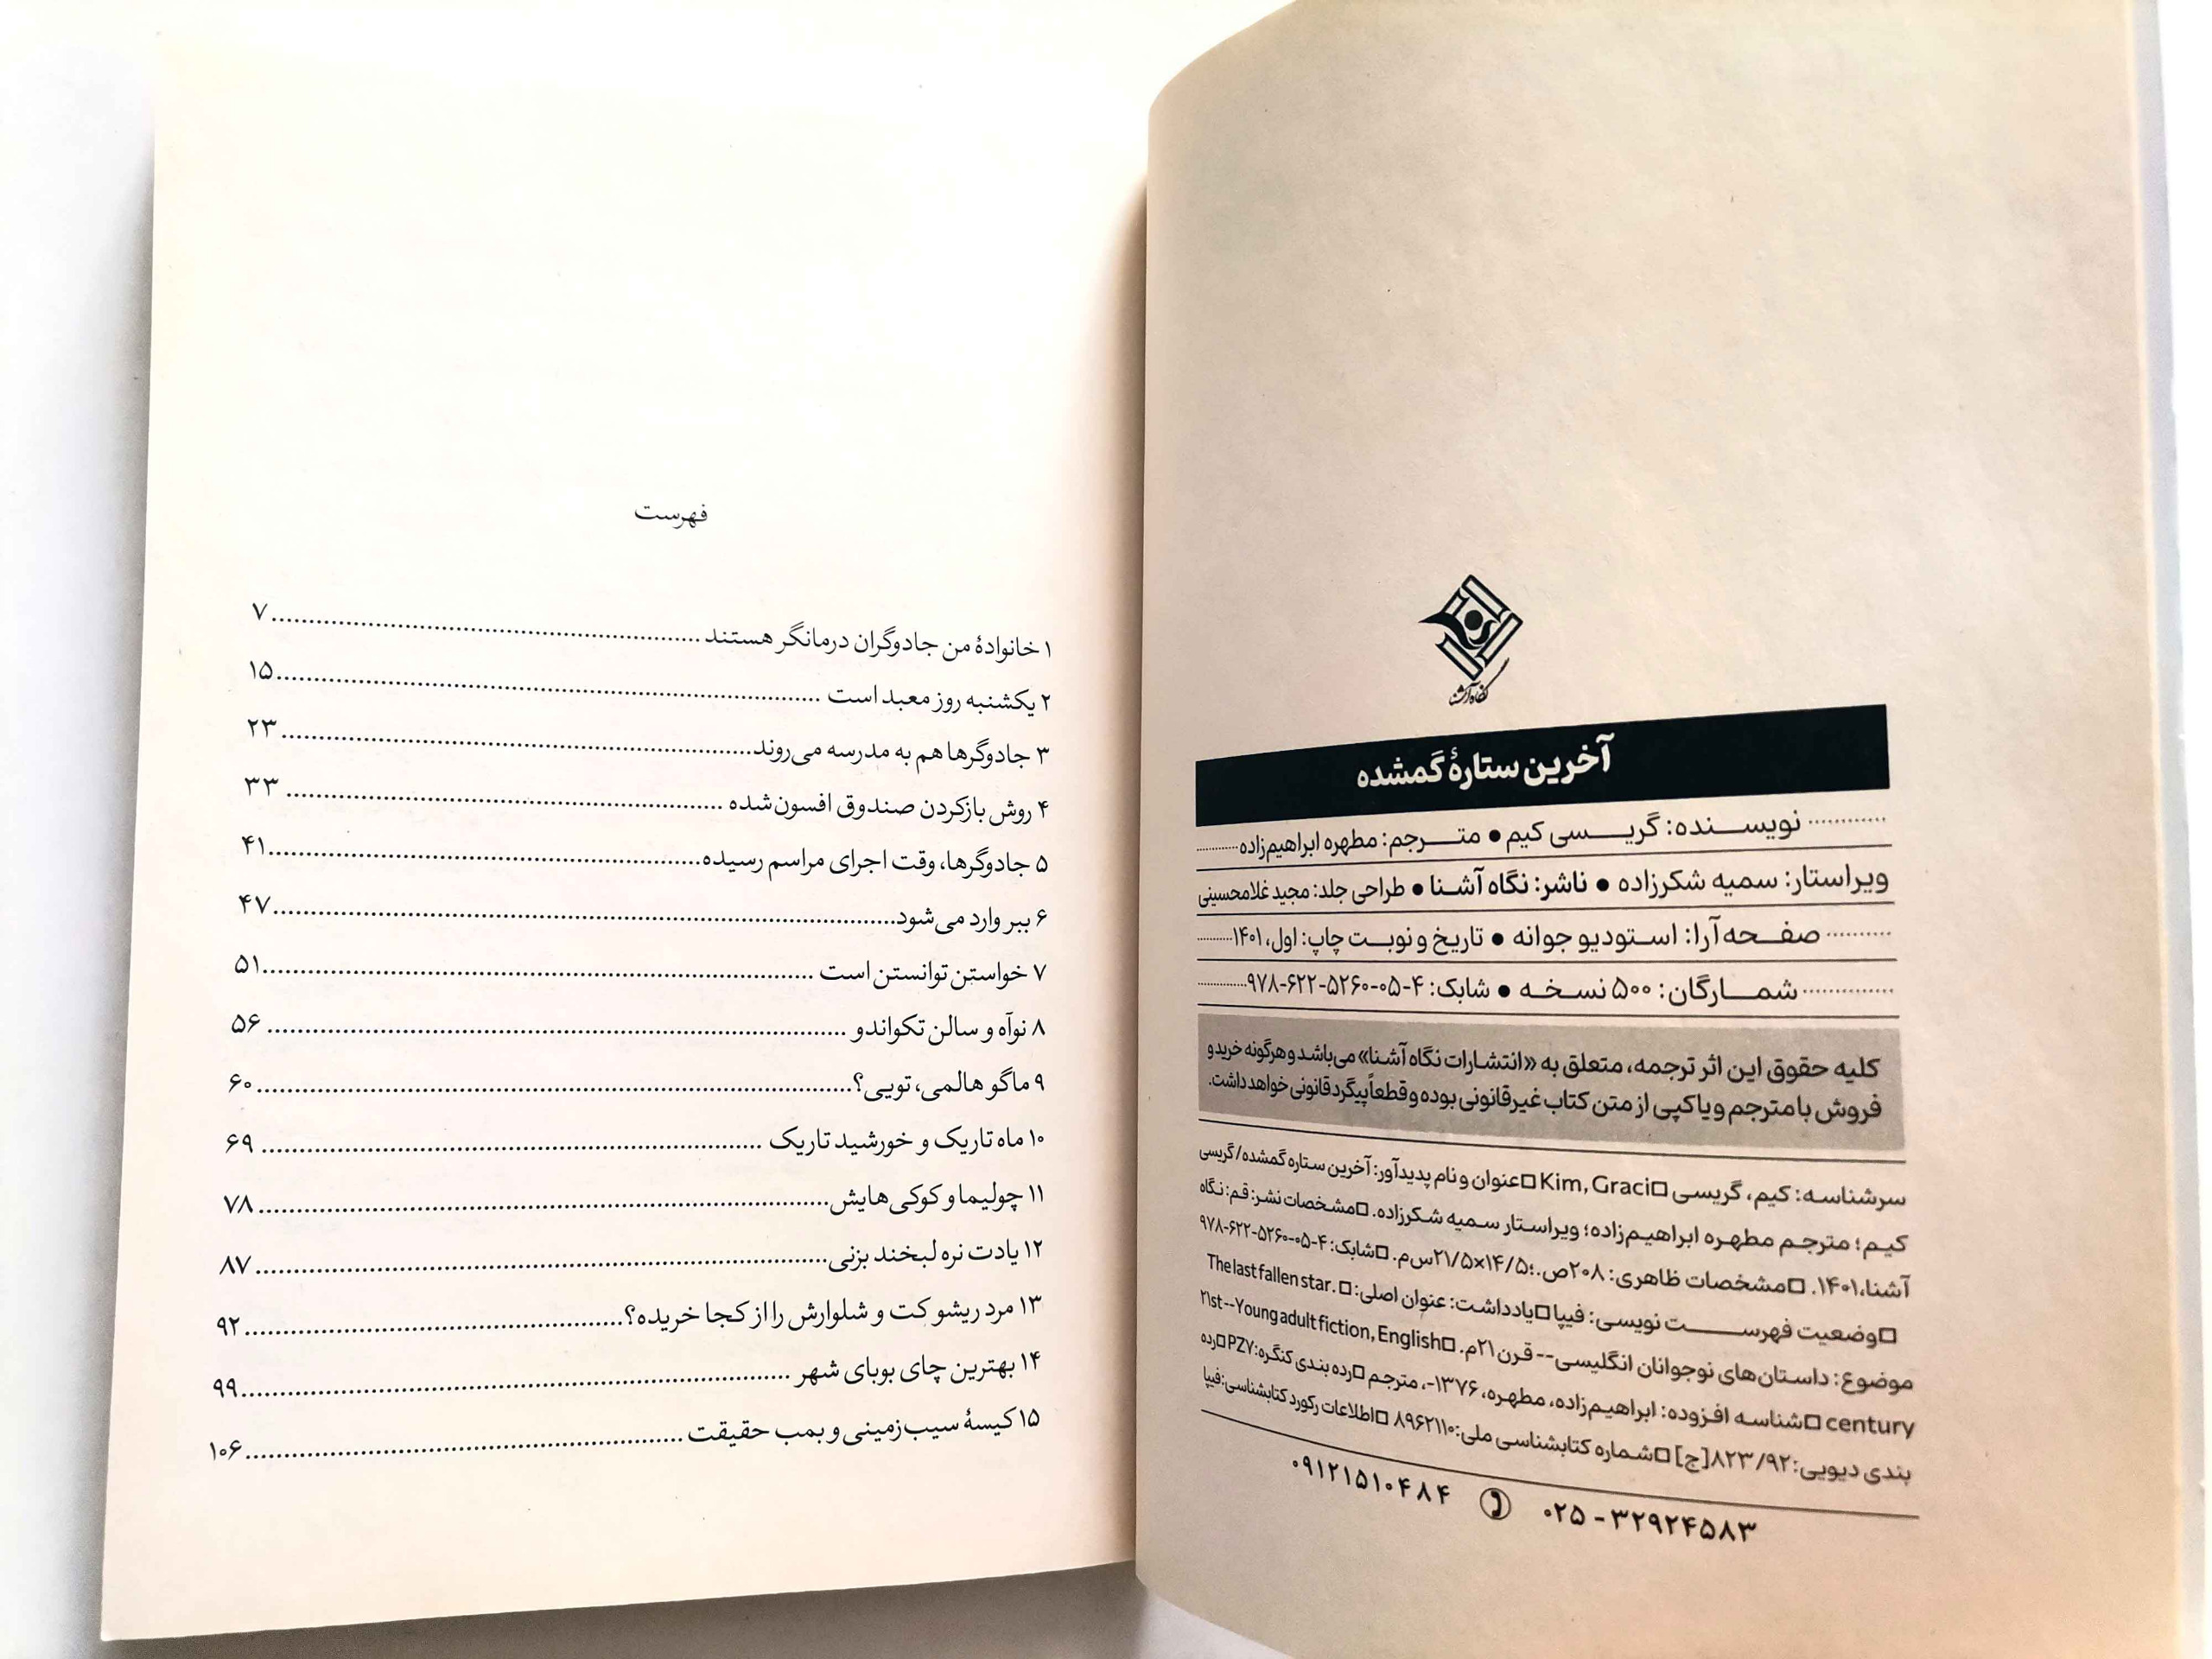 نگاه آشنا
آخرین ستارهٔ گمشده
نویسنده: گریسی کیم ● مترجم: مطهره ابراهیم‌زاده
ویراستار: سمیه شکرزاده ● ناشر: نگاه آشنا ● طراحی جلد: مجید غلامحسینی
صفحه‌آرا: استودیو جوانه ● تاریخ و نوبت چاپ: اول، ۱۴۰۱
شمارگان: ۵۰۰ نسخه ● شابک: ۴-۰۵-۵۲۶۰-۶۲۲-۹۷۸
کلیه حقوق این اثر ترجمه، متعلق به «انتشارات نگاه آشنا» می‌باشد و هرگونه خرید و
فروش با مترجم و یا کپی از متن کتاب غیرقانونی بوده و قطعاً پیگرد قانونی خواهد داشت.
سرشناسه: کیم، گریسی □Kim, Graci □عنوان و نام پدیدآور: آخرین ستاره گمشده/ گریسی
کیم؛ مترجم مطهره ابراهیم‌زاده؛ ویراستار سمیه شکرزاده. □مشخصات نشر: قم: نگاه
آشنا،۱۴۰۱. □مشخصات ظاهری: ۲۰۸ص.؛۱۴/۵×۲۱/۵س‌م. □شابک: ۴-۰۵-۵۲۶۰-۶۲۲-۹۷۸
□وضعیت فهرست نویسی: فیپا □یادداشت: عنوان اصلی: □ .The last fallen star
موضوع: داستان‌های نوجوانان انگلیسی-- قرن ۲۱م. □Young adult fiction, English--۲۱st
century □شناسه افزوده: ابراهیم‌زاده، مطهره، ۱۳۷۶-، مترجم □رده بندی کنگره: PZ۷ □رده
بندی دیویی: ۸۲۳/۹۲[ج] □شماره کتابشناسی ملی: ۸۹۶۲۱۱۰ □اطلاعات رکورد کتابشناسی: فیپا
۰۲۵ - ۳۲۹۲۴۵۸۳ ۰۹۱۲۱۵۱۰۴۸۴
فهرست
۱ خانوادهٔ من جادوگران درمانگر هستند ........ ۷
۲ یکشنبه روز معبد است ........ ۱۵
۳ جادوگرها هم به مدرسه می‌روند ........ ۲۳
۴ روش بازکردن صندوق افسون‌شده ........ ۳۳
۵ جادوگرها، وقت اجرای مراسم رسیده ........ ۴۱
۶ ببر وارد می‌شود ........ ۴۷
۷ خواستن توانستن است ........ ۵۱
۸ نوآه و سالن تکواندو ........ ۵۶
۹ ماگو هالمی، تویی؟ ........ ۶۰
۱۰ ماه تاریک و خورشید تاریک ........ ۶۹
۱۱ چولیما و کوکی‌هایش ........ ۷۸
۱۲ یادت نره لبخند بزنی ........ ۸۷
۱۳ مرد ریشو کت و شلوارش را از کجا خریده؟ ........ ۹۲
۱۴ بهترین چای بوبای شهر ........ ۹۹
۱۵ کیسهٔ سیب‌زمینی و بمب حقیقت ........ ۱۰۶